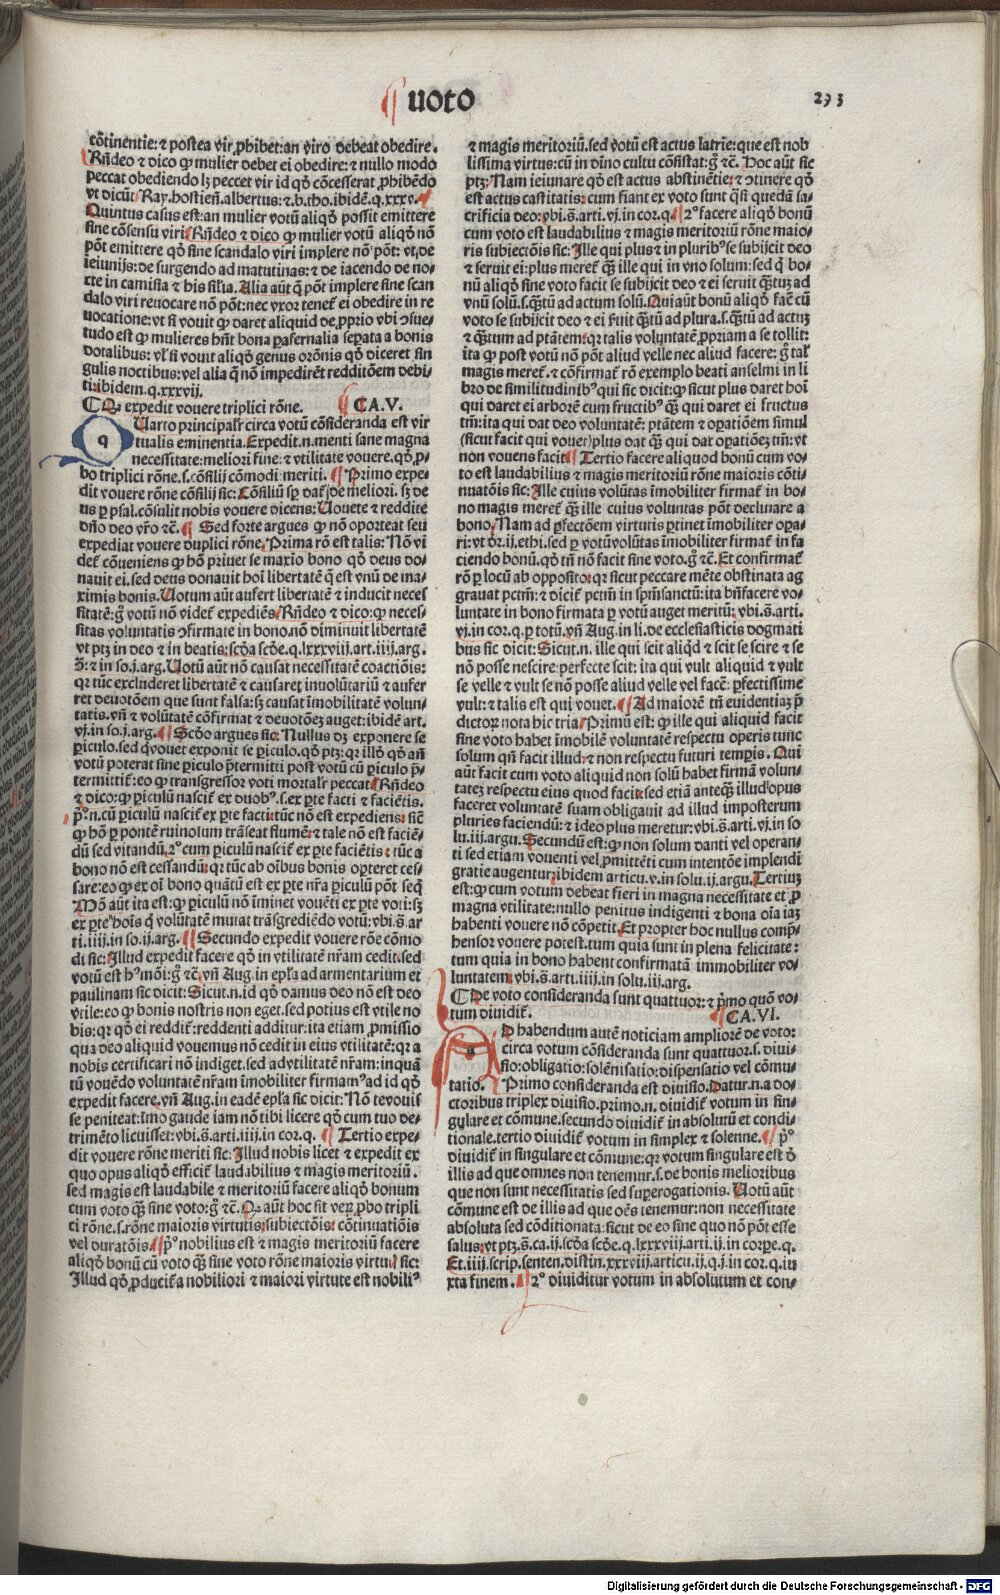 uoto
293
cõtinentie: ⁊ postea vir ꝓhibet: an viro debeat obedire.
Rñdeo ⁊ dico ꝙ mulier debet ei obedire: ⁊ nullo modo
peccat obediendo lꝫ peccet vir id qđ cõcesserat ꝓhibẽdo
vt dicũt Ray. hostieñ. albertus: ⁊ b. tho. ibidẽ. q. xxxv.
Quintus casus est: an mulier votũ aliqđ possit emittere
sine cõsensu viri. Rñdeo ⁊ dico ꝙ mulier votũ aliqđ nõ
põt emittere qđ sine scandalo viri implere nõ põt: vt de
ieiunijs: de surgendo ad matutinas: ⁊ de iacendo de no-
cte in camisia ⁊ his silia. Alia aũt q̃ põt implere sine scan
dalo viri reuocare nõ põt: nec vxor tenet̃ ei obedire in re
uocatione: vt si vouit ꝙ daret aliquid de ꝓprio vbi ↄsue-
tudo est ꝙ mulieres hñt bona parafernalia seꝑata a bonis
dotalibus: vl̃ si vouit aliqđ genus orõnis qđ diceret sin
gulis noctibus: vel alia q̃ nõ impedirẽt redditõem debi-
ti: ibidem. q. xxxvij.
Qꝫ expedit vouere triplici rõne. CA. V.
QUarto principalr̃ circa votũ cõsideranda est vir
tualis eminentia. Expedit. n. menti sane magna
necessitate: meliori fine: ⁊ vtilitate vouere. qđ ꝓ-
bo triplici rõne. s. cõsilij cõmodi meriti. Primo expe-
dit vouere rõne cõsilij sic: Cõsiliũ sꝑ dat̃ de meliori. sꝫ de
us ꝑ psal. cõsulit nobis vouere dicens: Uouete ⁊ reddite
dño deo vr̃o ⁊c̃. Sed forte argues ꝙ nõ oporteat seu
expediat vouere duplici rõne. Prima rõ est talis: Nõ vi
det̃ cõueniens ꝙ hõ priuet se maxio bono qđ deus do-
nauit ei. sed deus donauit hoi libertatẽ q̃ est vnũ de ma-
ximis bonis. Uotum aũt aufert libertatẽ ⁊ inducit neces
sitatẽ: g̃ votũ nõ videt̃ expediẽs. Rñdeo ⁊ dico: ꝙ neces-
sitas voluntatis ↄfirmate in bono. nõ diminuit libertatẽ
vt ptꝫ in deo ⁊ in beatis: scđa scđe. q. lxxxviij. art. iiij. arg.
⁊ in so. j. arg. Uotũ aũt nõ causat necessitatẽ coactiõis:
qr tũc excluderet libertatẽ ⁊ causaret inuolũtariũ ⁊ aufer
ret deuotõem que sunt falsa: sꝫ causat ĩmobilitatẽ volun-
tatis. vñ ⁊ volũtatẽ cõfirmat ⁊ deuotõeꝫ auget: ibidẽ art.
vj. in so. j. arg. Scđo argues sic: Nullus dꝫ exponere se
ꝑiculo. sed q̃ vouet exponit se ꝑiculo. qđ ptꝫ: qr illđ qđ añ
votũ poterat sine ꝑiculo p̃termitti post votũ cũ ꝑiculo p̃-
termittit̃: eo ꝙ transgressor voti mortalr̃ peccat. Rñdeo
⁊ dico: ꝙ ꝑiculũ nascit̃ ex duobꝰ. s. ex ꝑte facti ⁊ faciẽtis.
pͦ. n. cũ ꝑiculũ nascit̃ ex ꝑte facti: tũc nõ est expediens: sic̃
ꝙ hõ ꝑ pontẽ ruinosum trãseat flumẽ: ⁊ tale nõ est faciẽ-
dũ sed vitandũ. 2ͦ cum ꝑiculũ nascit̃ ex ꝑte faciẽtis: tũc a
bono nõ est cessandũ: qr tũc ab oĩbus bonis oꝑteret ces-
sare: eo ꝙ ex oĩ bono quãtũ est ex ꝑte nr̃a ꝑiculũ põt seq̃
Mõ aũt ita est: ꝙ ꝑiculũ nõ iminet vouẽti ex ꝑte voti: sꝫ
ex ꝑte hoĩs q̃ volũtatẽ mutat trãsgrediẽdo votũ: vbi. s̃. ar
ti. iiij. in so. ij. arg. Secundo expedit vouere rõe cõmo
di sic: Illud expedit facere qđ in vtilitatẽ nr̃am cedit. sed
votũ est hꝰmõi: g̃ ⁊c̃. vñ Aug. in epl̃a ad armentarium et
paulinam sic dicit: Sicut. n. id qđ damus deo nõ est deo
vtile: eo ꝙ bonis nostris non eget. sed potius est vtile no
bis: qr qđ ei reddit̃: reddenti additur: ita etiam ꝓmissio
qua deo aliquid vouemus nõ cedit in eius vtilitatẽ: qr a
nobis certificari nõ indiget. sed ad vtilitatẽ nr̃am: inquã
tũ vouẽdo voluntatẽ nr̃am ĩmobiliter firmamꝰ ad id qđ
expedit facere. vñ Aug. in eadẽ epl̃a sic dicit: Nõ te vouis
se peniteat: ĩmo gaude iam nõ tibi licere qđ cum tuo de-
trimẽto licuisset: vbi. s̃. arti. iiij. in cor. q. Tertio expe-
dit vouere rõne meriti sic: Illud nobis licet ⁊ expedit ex
quo opus aliqđ efficit̃ laudabilius ⁊ magis meritoriũ.
sed magis est laudabile ⁊ meritoriũ facere aliqđ bonum
cum voto q̃ꝫ sine voto: g̃ ⁊c̃. Qꝫ aũt hoc sit veꝝ ꝓbo tripli
ci rõne. s. rõne maioris virtutis: subiectõis: cõtinuatiõis
vel duratõis. pͦ nobilius est ⁊ magis meritoriũ facere
aliqđ bonũ cũ voto q̃ꝫ sine voto rõne maioris virtutis sic:
Illud qđ ꝓducit̃ a nobiliori ⁊ maiori virtute est nobiliꝰ
⁊ magis meritoriũ. sed votũ est actus latrie: que est nob
lissima virtus: cũ in diuino cultu cõsistat: g̃ ⁊c̃. Hoc aũt sic
ptꝫ: Nam ieiunare qđ est actus abstinẽtie: ⁊ ↄtinere qđ
est actus castitatis: cum fiant ex voto sunt q̃si quedã sa-
crificia deo: vbi. s̃. arti. vj. in cor. q. 2ͦ facere aliqđ bonũ
cum voto est laudabilius ⁊ magis meritoriũ rõne maio-
ris subiectõis sic: Ille qui plus ⁊ in pluribꝰ se subijcit deo
⁊ seruit ei: plus meret̃ q̃ꝫ ille qui in vno solum: sed q̃ bo-
nũ aliqđ sine voto facit se subijcit deo ⁊ ei seruit q̃ꝫtuꝫ ad
vnũ solũ. s. q̃ꝫtũ ad actum solũ. Qui aũt bonũ aliqđ facẽ cũ
voto se subijcit deo ⁊ ei s̃uit q̃ꝫtũ ad plura. s. q̃ꝫtũ ad actuꝫ
⁊ q̃ꝫtum ad ptãtem: qr talis voluntatẽ ꝓpriam a se tollit:
ita ꝙ post votũ nõ põt aliud velle nec aliud facere: g̃ tal̃
magis meret̃. ⁊ cõfirmat̃ rõ exemplo beati anselmi in li
bro de similitudinibꝰ qui sic dicit: ꝙ sicut plus daret hoĩ
qui daret ei arborẽ cum fructibꝰ q̃ꝫ qui daret ei fructus
tm̃: ita qui dat deo voluntatẽ: ptãtem ⁊ oꝑatiõem simul
(sicut facit qui vouet) plus dat q̃ꝫ qui dat oꝑatiõeꝫ tm̃: vt
non vouens facit. Tertio facere aliquod bonũ cum vo-
to est laudabilius ⁊ magis meritoriũ rõne maioris cõti-
nuatõis sic: Ille cuius volũtas ĩmobiliter firmat̃ in bo-
no magis meret̃ q̃ꝫ ille cuius voluntas põt declinare a
bono. Nam ad ꝑfectõem virtutis ꝑtinet ĩmobiliter oꝑa-
ri: vt dr̃. ij. ethi. sed ꝑ votũ volũtas ĩmobiliter firmat̃ in fa
ciendo bonũ. qđ tñ nõ facit sine voto. g̃ ⁊c̃. Et confirmat̃
rõ ꝑ locũ ab opposito: qr sicut peccare mẽte obstinata ag
grauat pctm̃: ⁊ dicit̃ pctm̃ in spm̃sanctũ: ita bñfacere vo-
luntate in bono firmata ꝑ votũ auget meritũ: vbi. s̃. arti.
vj. in cor. q. ꝑ totũ. vñ Aug. in li. de ecclesiasticis dogmati
bus sic dicit: Sicut. n. ille qui scit aliqđ ⁊ scit se scire ⁊ se
nõ posse nescire: perfecte scit: ita qui vult aliquid ⁊ vult
se velle ⁊ vult se nõ posse aliud velle vel facẽ: ꝑfectissime
vult: ⁊ talis est qui vouet. Ad maiorẽ tñ euidentiaꝫ p̃
dictoꝝ nota hic tria. Primũ est: ꝙ ille qui aliquid facit
sine voto habet ĩmobilẽ voluntatẽ respectu operis tunc
solum qñ facit illud: ⁊ non respectu futuri tempris. Qui
aũt facit cum voto aliquid non solũ habet firmã volun-
tateꝫ respectu eius quod facit: sed etiã anteq̃ꝫ illud opus
faceret voluntatẽ suam obligauit ad illud imposterum
pluries faciendũ: ⁊ ideo plus meretur: vbi. s̃. arti. vj. in so
lu. iij. argu. Secundũ est: ꝙ non solum danti vel operan-
ti sed etiam vouenti vel ꝓmittẽti cum intentõe implendi
gratie augentur: ibidem articu. v. in solu. ij. argu. Tertiuꝫ
est: ꝙ cum votum debeat fieri in magna necessitate et ꝓ
magna vtilitate: nullo penitus indigenti ⁊ bona oĩa iaꝫ
habenti vouere nõ cõpetit. Et propter hoc nullus comp̃-
hensor vouere potest. tum quia sunt in plena felicitate:
tum quia in bono habent confirmatã immobiliter vo-
luntatem: vbi. s̃. arti. iiij. in solu. iij. arg.
De voto consideranda sunt quattuor: ⁊ p̃mo quõ vo-
tum diuidit̃. CA. VI.
AD habendum autẽ noticiam ampliorẽ de voto:
circa votum cõsideranda sunt quattuor. s. diui-
sio: obligatio: solẽnisatio: dispensatio vel cõmu-
tatio. Primo consideranda est diuisio. Datur. n. a do-
ctoribus triplex diuisio. primo. n. diuidit̃ votum in sin-
gulare et cõmune. secundo diuidit̃ in absolutũ et condi-
tionale. tertio diuidit̃ votum in simplex ⁊ solenne. pͦ
diuidit̃ in singulare et cõmune: qr votum singulare est đ
illis ad que omnes non tenemur. s. de bonis melioribus
que non sunt necessitatis sed superogationis. Uotũ aũt
cõmune est de illis ad que oẽs tenemur: non necessitate
absoluta sed cõditionata: sicut de eo sine quo nõ põt esse
salus: vt ptꝫ. s̃. ca. ij. scđa scđe. q. lxxxviij. arti. ij. in corpe. q.
Et. iiij. scrip. senten. distin. xxxviij. articu. ij. q. j. in cor. q. iu
xta finem. 2ͦ diuiditur votum in absolutum et con-
Digitalisierung gefördert durch die Deutsche Forschungsgemeinschaft - DFG